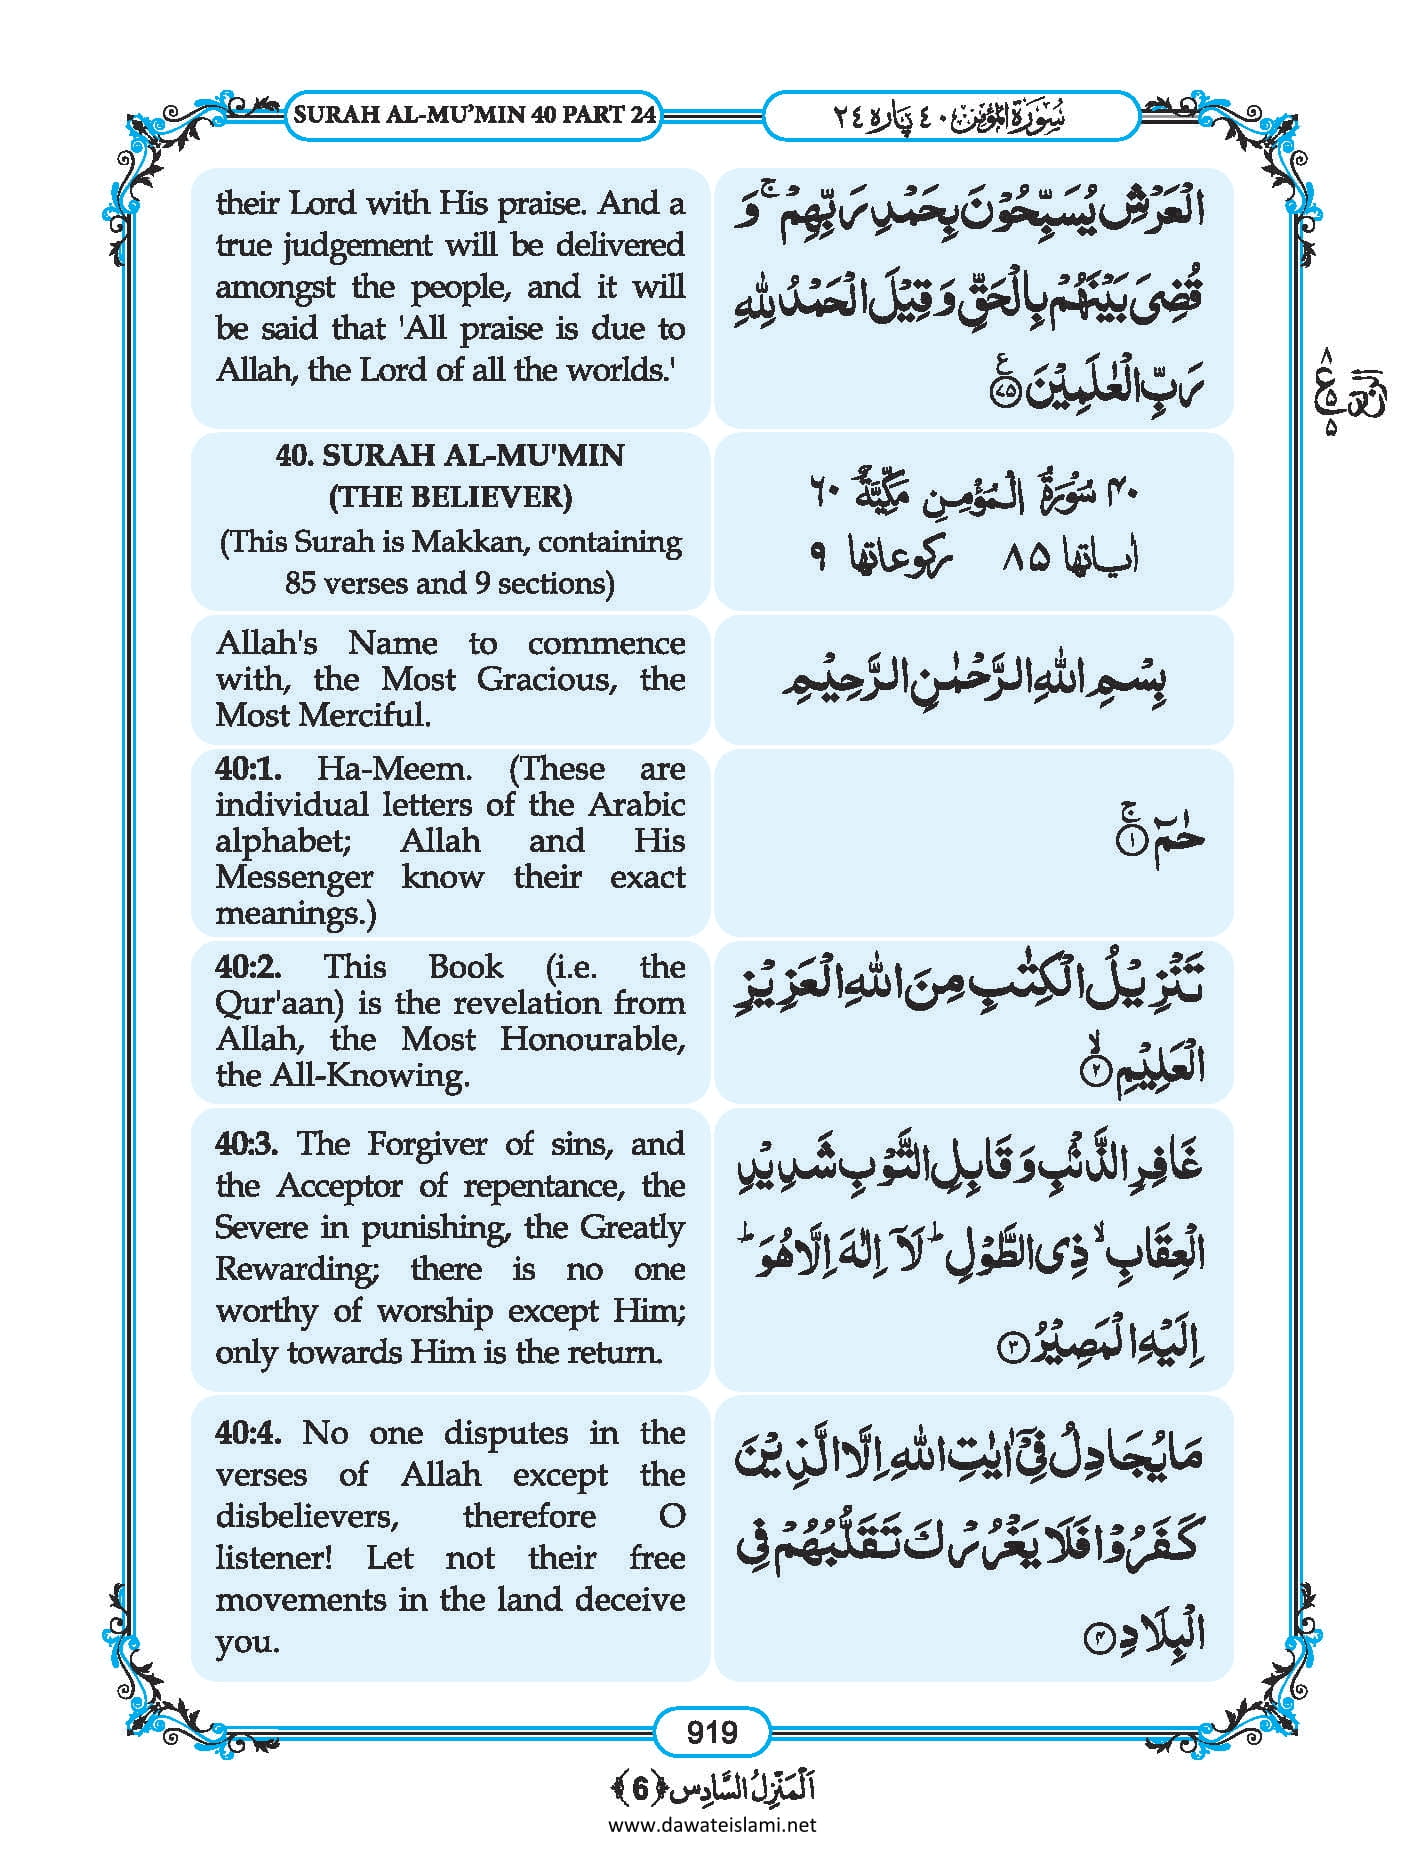 SURAH AL-MU’MIN 40 PART 24
سُوْرَةُ الْمُؤْمِن ٤٠ پَارَه ٢٤
their Lord with His praise. And a
true judgement will be delivered
amongst the people, and it will
be said that 'All praise is due to
Allah, the Lord of all the worlds.'
الْعَرْشِ یُسَبِّحُوْنَ بِحَمْدِ رَبِّهِمْ ۚ وَ
قُضِیَ بَیْنَهُمْ بِالْحَقِّ وَ قِیْلَ الْحَمْدُ لِلّٰهِ
رَبِّ الْعٰلَمِیْنَ ﴿۷۵﴾
40. SURAH AL-MU'MIN
(THE BELIEVER)
(This Surah is Makkan, containing
85 verses and 9 sections)
۴۰ سُوْرَةُ الْمُؤْمِنِ مَكِّیَّةٌ ۶۰
اٰیاتها ۸۵ رکوعاتها ۹
Allah's Name to commence
with, the Most Gracious, the
Most Merciful.
بِسْمِ اللهِ الرَّحْمٰنِ الرَّحِیْمِ
40:1. Ha-Meem. (These are
individual letters of the Arabic
alphabet; Allah and His
Messenger know their exact
meanings.)
حٰمٓ ۚ﴿۱﴾
40:2. This Book (i.e. the
Qur'aan) is the revelation from
Allah, the Most Honourable,
the All-Knowing.
تَنْزِیْلُ الْكِتٰبِ مِنَ اللهِ الْعَزِیْزِ
الْعَلِیْمِ ۙ﴿۲﴾
40:3. The Forgiver of sins, and
the Acceptor of repentance, the
Severe in punishing, the Greatly
Rewarding; there is no one
worthy of worship except Him;
only towards Him is the return.
غَافِرِ الذَّنْۢبِ وَ قَابِلِ التَّوْبِ شَدِیْدِ
الْعِقَابِ ۙ ذِی الطَّوْلِ ؕ لَاۤ اِلٰهَ اِلَّا هُوَ ؕ
اِلَیْهِ الْمَصِیْرُ ﴿۳﴾
40:4. No one disputes in the
verses of Allah except the
disbelievers, therefore O
listener! Let not their free
movements in the land deceive
you.
مَا یُجَادِلُ فِیْۤ اٰیٰتِ اللهِ اِلَّا الَّذِیْنَ
كَفَرُوْا فَلَا یَغْرُرْكَ تَقَلُّبُهُمْ فِی
الْبِلَادِ ﴿۴﴾
919
اَلْمَنْزِلُ السَّادِس ﴿6﴾
www.dawateislami.net